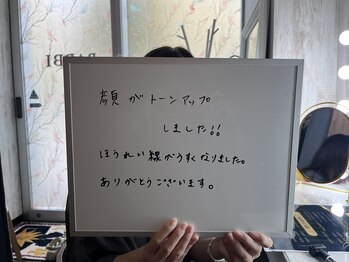 顔がトーンアップ
しました!!
ほうれい線がうすくなりました。
ありがとうございます。